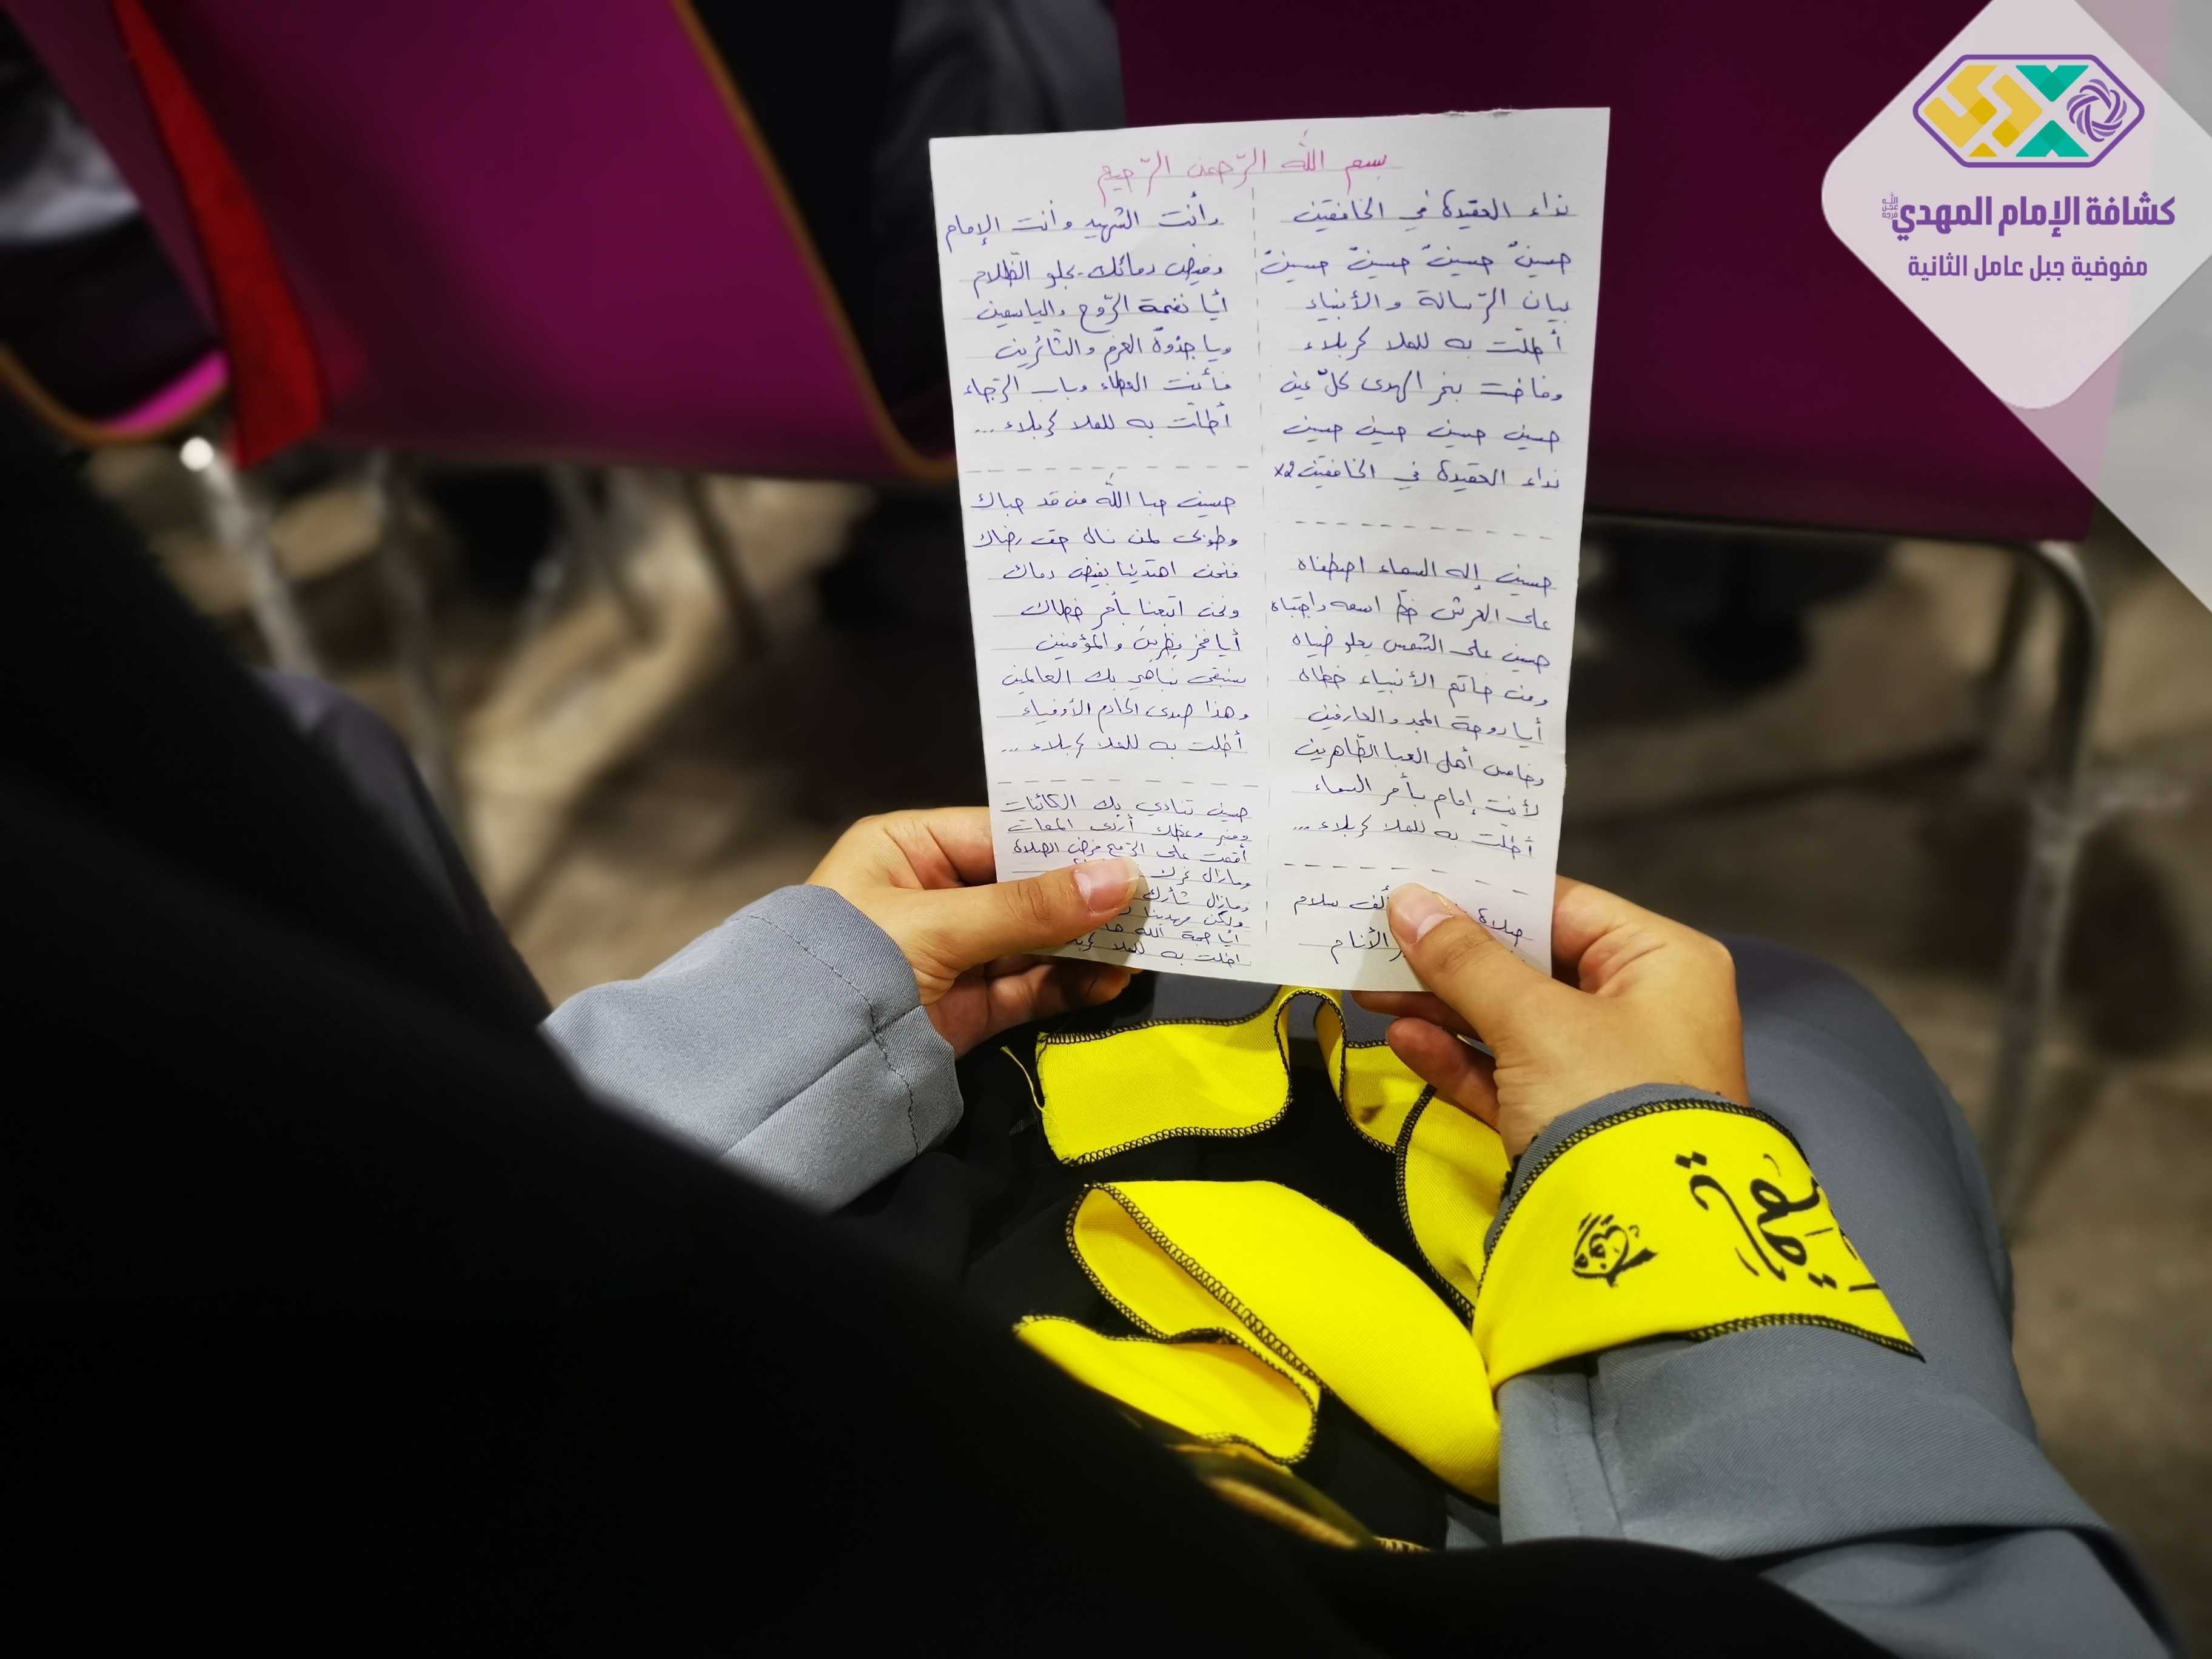 بسم الله الرّحمن الرّحيم
نداء العقيدة في الخافقين
حسينٌ حسينٌ حسينٌ حسينٌ
بيان الرّسالة والأنبياء
أطلّت به للعلا كربلاء
وفاضت بنحر الهدى كلّ عين
حسين حسين حسين حسين
نداء العقيدة في الخافقين x2
حسين إله السماء اصطفاه
على العرش خطّ اسمه واجتباه
حسين على الشمس يعلو ضياه
ومن خاتم الأنبياء خطاه
أيا دوحة المجد والعارفين
وخامس أهل العبا الطّاهرين
لأنت إمام بأمر السماء
أطلّت به للعلا كربلاء ...
صلاة
ألف سلام
الأنام
وأنت الشهيد وأنت الإمام
وفيض دمائك يجلو الظّلام
أيا نغمة الرّوح والياسمين
ويا جذوة العزم والثّائرين
فأنت العطاء وباب الرّجاء
أطلّت به للعلا كربلاء ...
حسين حبا الله من قد حباك
وطوبى لمن نال حقّ رضاك
فنحن اهتدينا بفيض دماك
ونحن اتبعنا بأمر خطاك
أيا فخر والمؤمنين
سنبقى نباهي بك العالمين
وهذا صدى الخادم الأوفياء
أطلت به للعلا كربلاء ...
حسين تنادي بك الكائنات
ومنبر وعظك أردى الممات
أقمت على الرّمح فرض الصلاة
ومازال
ومازال ثأرك
ولكن مهدينا
أيا حجة الله
اطلت به للعلا
كشافة الإمام المهدي
مفوضية جبل عامل الثانية